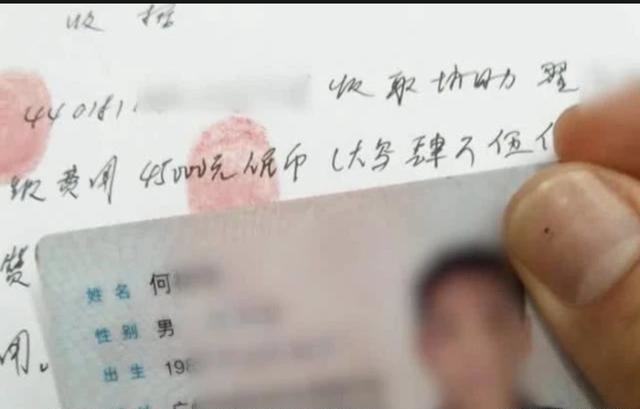 收据
440181 收取协助翟
级费用45000元人民币(大写肆万伍仟
费
用。
姓名 何
性别 男
出生 198